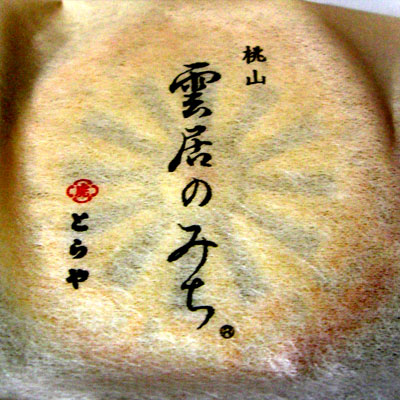 桃山
雲居のみち
とらや